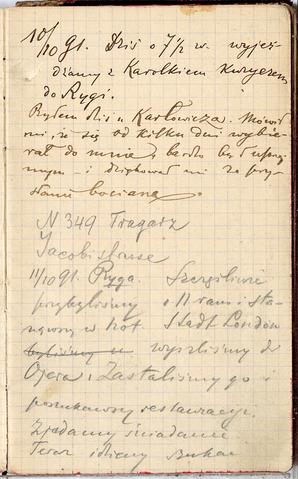 10/10 91. Dziś o 7½ w. wyjeż-
dżamy z Karolkiem Kuryerem
do Rygi.
Byłem dziś u Karłowicza. Mówił
mi, że się od kilku dni wybie-
rał do mnie, bardzo był uprzej-
mym - i dziękował mi za przy-
słanie bociana.
N 349 Tragarz
Jacobistrasse
11/10 91. Ryga. Szczęśliwie
przybyliśmy o 11 rano i sta-
nąwszy w hot. Stadt London
byliśmy u wyszliśmy do
Ojca i Zastaliśmy go i
poszukawszy restauracyi.
Zjadamy śniadanie
Teraz idziemy